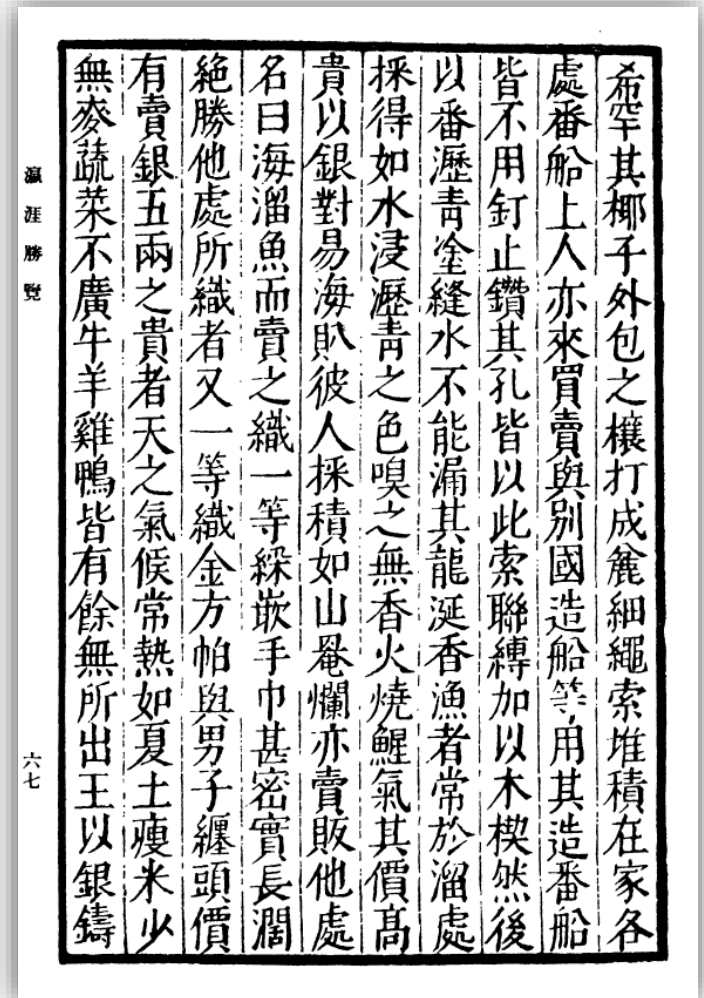 希罕其椰子外包之穰打成麄細繩索堆積在家各
處番船上人亦來買賣與别國造船等用其造番船
皆不用釘止鑽其孔皆以此索聯縛加以木楔然後
以番瀝青塗縫水不能漏其龍涎香漁者常於溜處
採得如水浸瀝青之色嗅之無香火燒鯹氣其價髙
貴以銀對易海𧴩彼人採積如山罨爛亦賣販他處
名曰海溜魚而賣之織一等綵嵌手巾甚密實長濶
絶勝他處所織者又一等織金方帕與男子纏頭價
有賣銀五兩之貴者天之氣候常熱如夏土瘦米少
無麥蔬菜不廣牛羊雞鴨皆有餘無所出王以銀鑄
瀛涯勝覽
六七